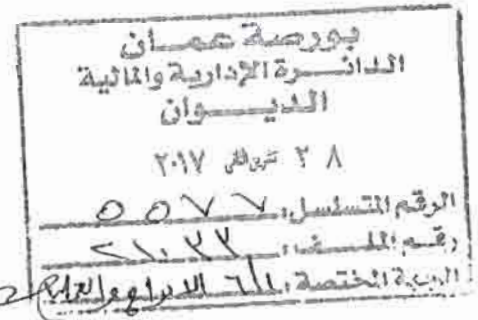 بورصة عمان
الدائرة الإدارية والمالية
الديوان
٢٨ تشرين الثاني ٢٠١٧
الرقم المتسلسل: ٥٥٧٧
رقم الملف:
الجهة المختصة: الادراج